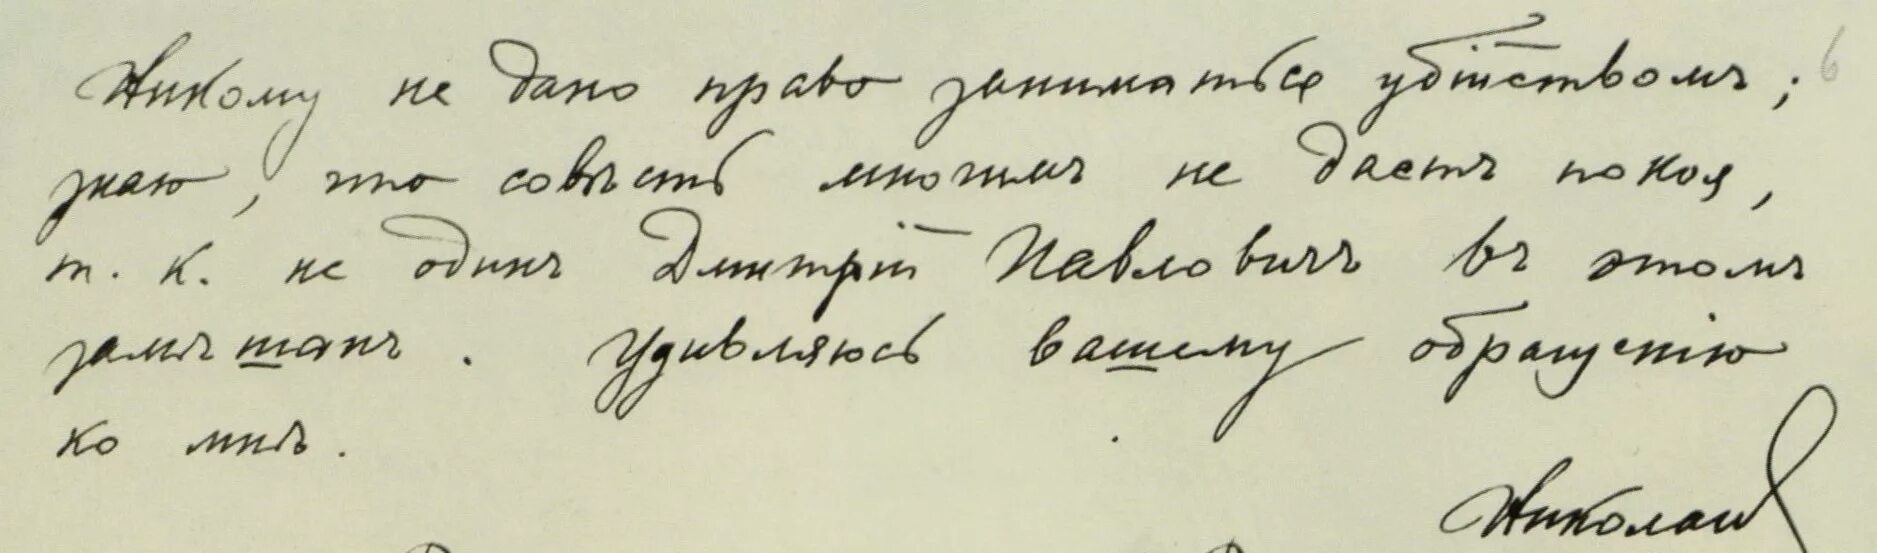 Никому не дано право заниматься убійствомъ;
знаю, что совѣсть многимъ не даетъ покоя,
т. к. не одинъ Дмитрій Павловичъ въ этомъ
замѣшанъ. Удивляюсь вашему обращенію
ко мнѣ.
Николай